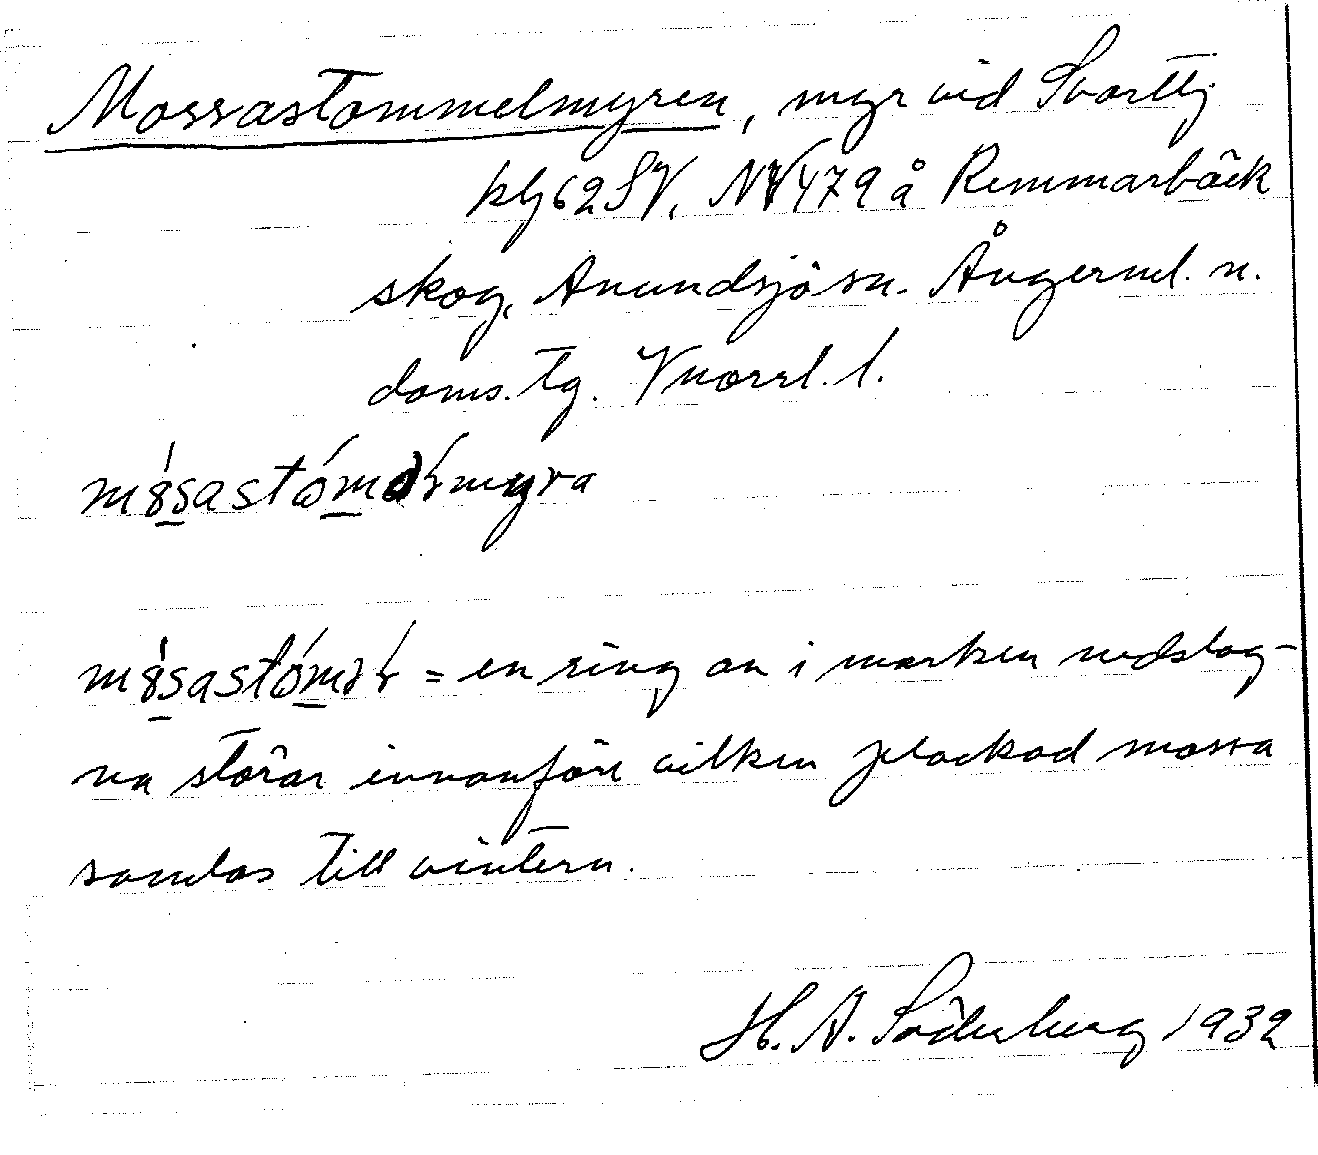 Mossastommelmyren, myr vid Svarttj
kbj 62 SV, NV 479 å Remmarbäck
skog, Anundsjö sn. Ångerml. n.
doms. tg. Vnorrl. l.
en ring av i marken nedslag-
na störar innanför vilken plockad mossa
samlas till vintern.
H. A. Söderberg 1932